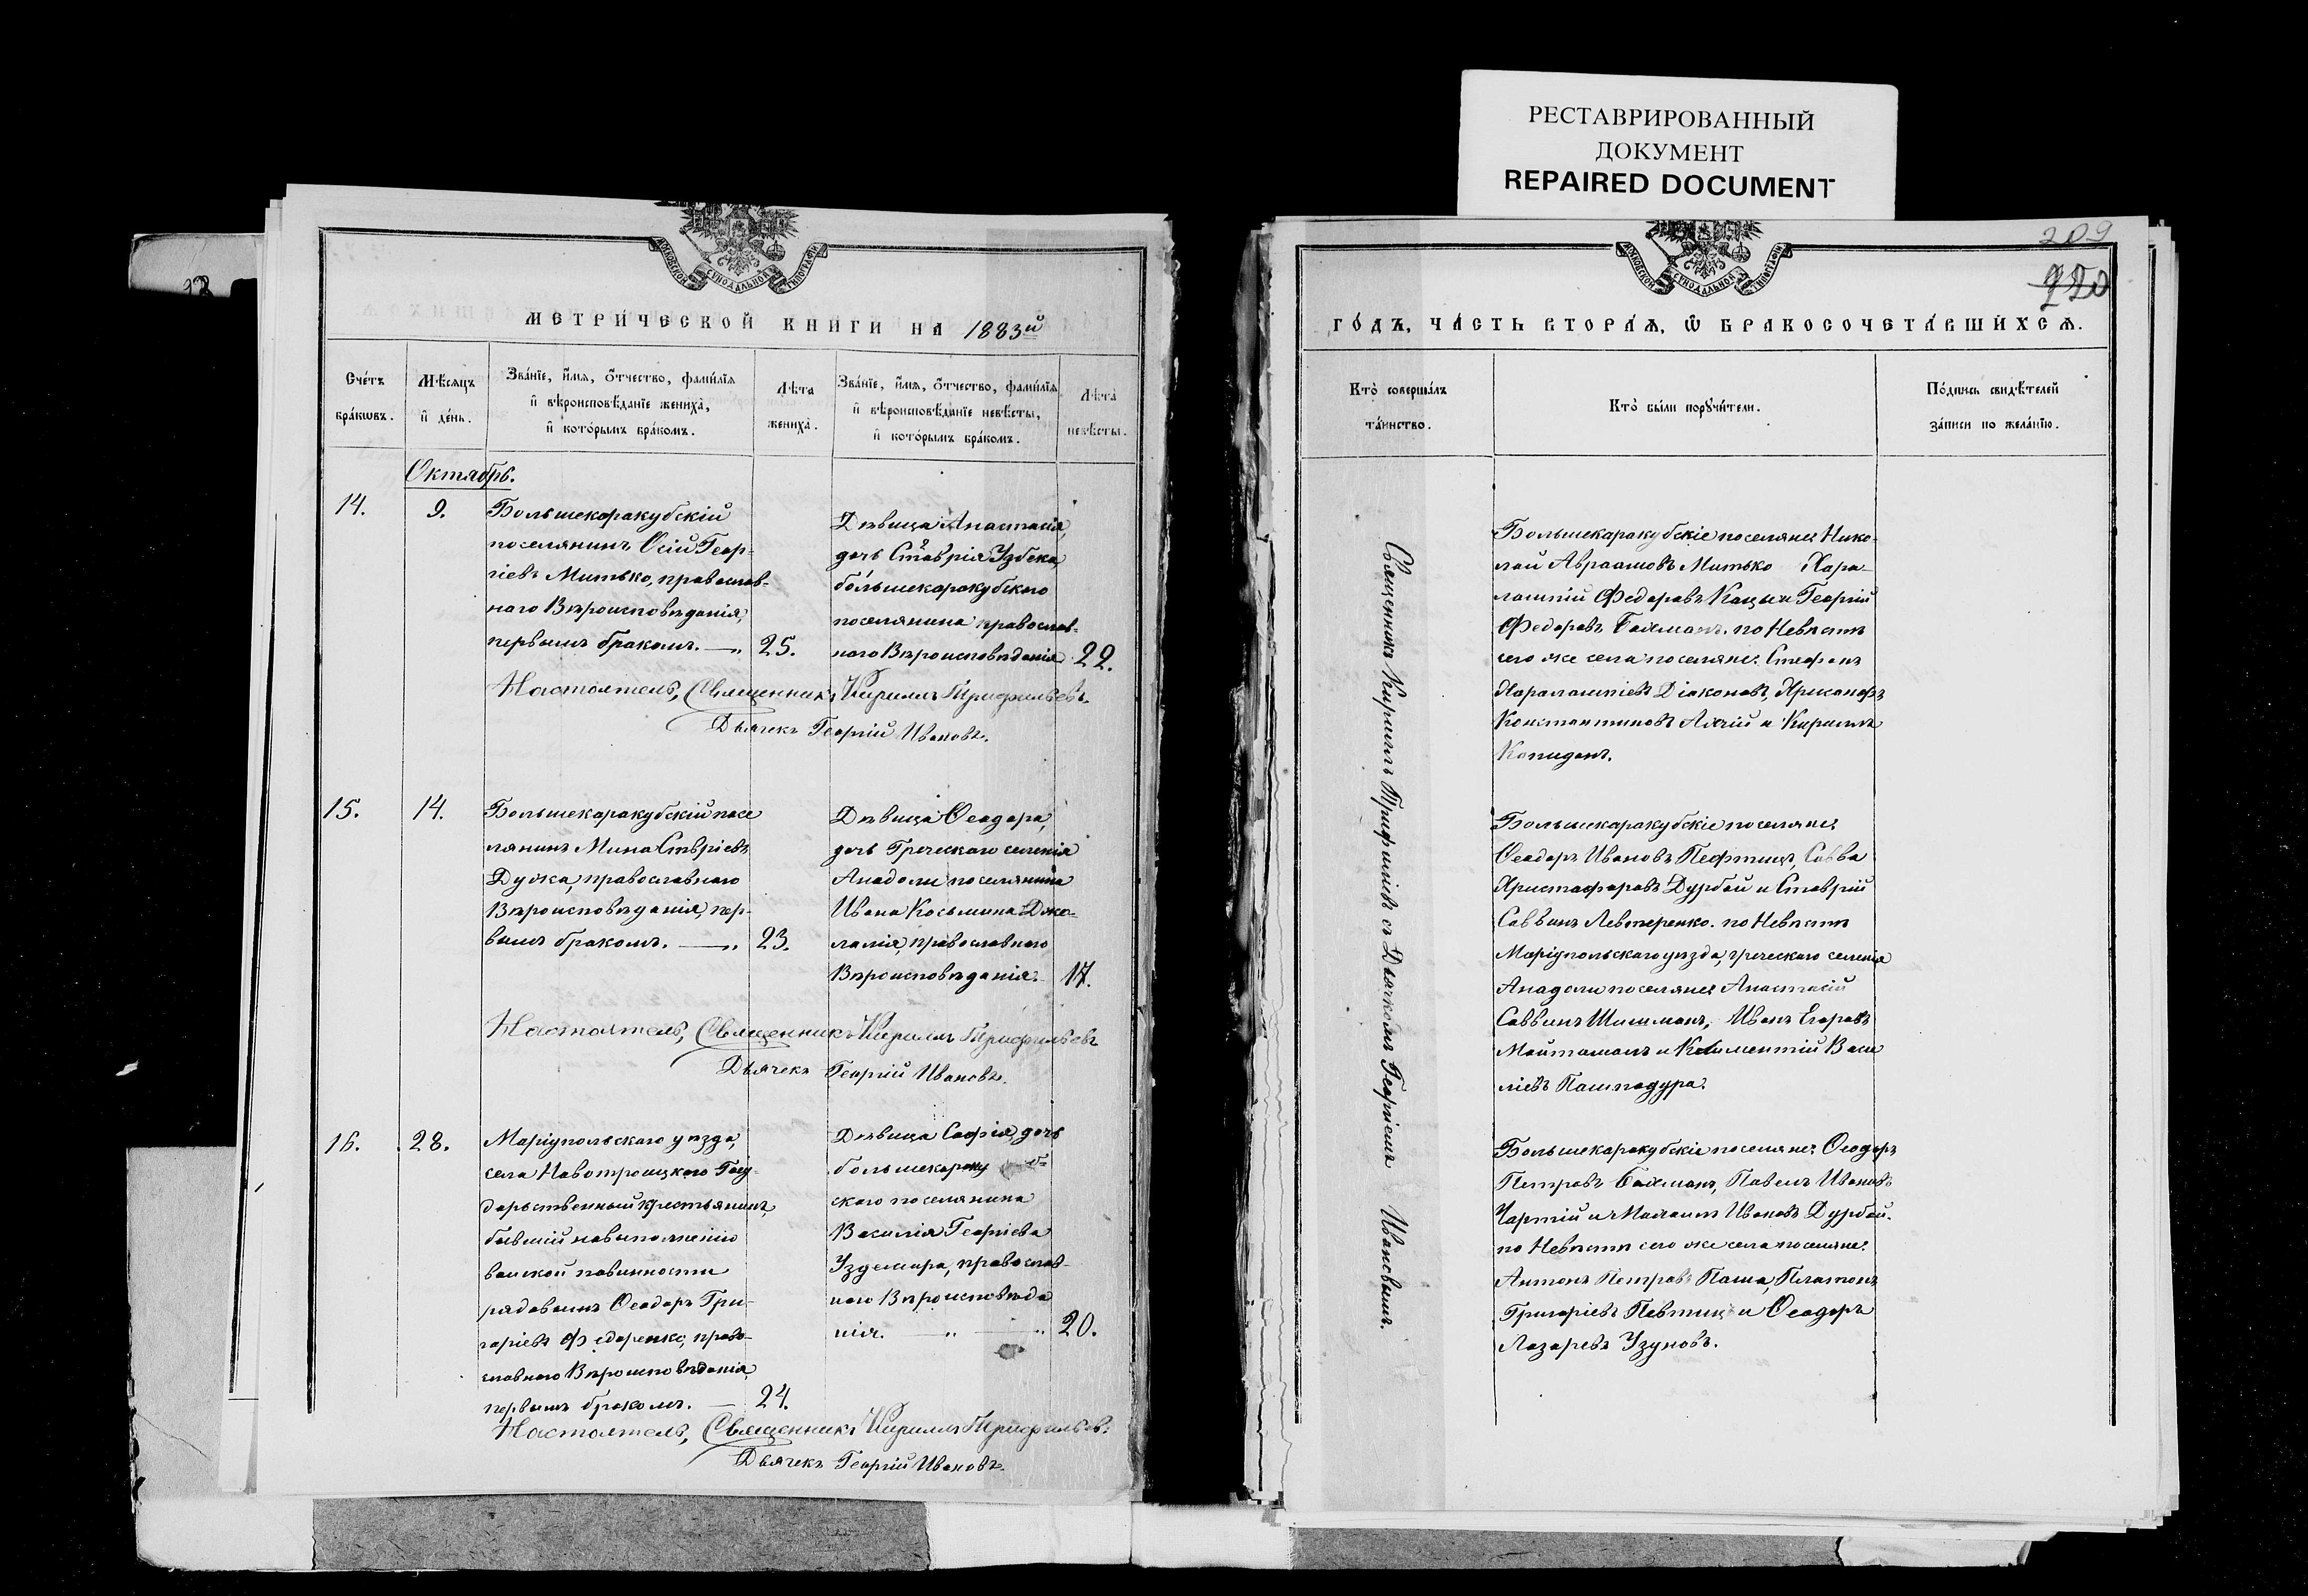 РЕСТАВРИРОВАННЫЙ
ДОКУМЕНТ
REPAIRED DOCUMENT
МОСКОВСКОЙ СѴНОДАЛЬНОЙ ТИПОГРАФІИ
МЕТРИ́ЧЕСКОЙ КНИГИ НА 1883й
Сче́тъ бра́кωвъ.
Мѣ́сяцъ и҆ де́нь.
Зва́нїе, и҆́мѧ, ѻ҆́тчество, фами́лїѧ
и҆ вѣроисповѣ́данїе жениха̀,
и҆ кото́рымъ бра́комъ.
Лѣ́та жениха̀.
Зва́нїе, и҆́мѧ, ѻ҆́тчество, фами́лїѧ
и҆ вѣроисповѣ́данїе невѣ́сты,
и҆ кото́рымъ бра́комъ.
Лѣ́та невѣ́сты.
Октябрь.
14.
9.
Большекаракубскій
поселянинъ Осій Геор-
гіевъ Митько, православ-
наго Вѣроисповѣданія,
первымъ бракомъ. —„ 25.
Дѣвица Анастасія,
дочь Ставрія Узбека,
большекаракубскаго
поселянина православ-
наго Вѣроисповѣданія. 22.
Настоятель, Священникъ Кириллъ Трифильевъ.
Дьячекъ Георгій Ивановъ.
15.
14.
Большекаракубскій посе
лянинъ Мина Ствріевъ
Дужа, православнаго
Вѣроисповѣданія, пер-
вымъ бракомъ. —„ 23.
Дѣвица Ѳеодора,
дочь Греческаго селенія
Анадоли поселянина
Ивана Косьмина Джа-
ламія, православнаго
Вѣроисповѣданія. 17.
Настоятель, Священникъ Кириллъ Трифильевъ
Дьячекъ Георгій Ивановъ.
16.
28.
Маріупольскаго уѣзда,
села Новотроицкаго Госу-
дарьственный крестьянинъ,
бывшій на выполненію
воиской повинности
рядовымъ Ѳеодоръ Гри-
горіевъ Федоренко, право-
славнаго Вѣроисповѣданія,
первымъ бракомъ. — 24.
Дѣвица Софія, дочь
большекараку б-
скаго поселянина
Василія Георгіева
Уздемира, православ-
наго Вѣроисповѣда
нія. —„ —„ 20.
Настоятель, Священникъ Кириллъ Трифильевъ.
Дьячекъ Георгій Ивановъ.
209
220
МОСКОВСКОЙ СѴНОДАЛЬНОЙ ТИПОГРАФІИ
ГО́ДЪ, ЧА́СТЬ ВТОРА́Ѧ, Ѽ БРАКОСОЧЕТА́ВШИХСѦ.
Кто̀ соверша́лъ та́инство.
Кто̀ бы́ли порꙋчи́тели.
По́дпись свидѣ́телей
за́писи по жела́нїю.
Священникъ Кириллъ Трифиліевъ съ Дьячкомъ Георгіемъ Ивановымъ.
Большекаракубскіе поселяне: Нико-
лай Авраамовъ Митько Хара-
лампій Федоровъ Кацы и Георгій
Федоровъ Бахманъ. по Невѣстѣ
сего же села поселяне: Стефанъ
Харалампіевъ Діаконовъ, Хрисанфъ
Константиновъ Ахчій и Кириллъ
Капиданъ.
Большекаракубскіе поселяне:
Ѳеодоръ Ивановъ Пефтицъ, Савва
Христофоровъ Дурбай и Ставрій
Саввинъ Левтеренко. по Невѣстѣ
Маріупольскаго уѣзда, греческаго селенія
Анадоли поселяне: Анастасій
Саввинъ Шишманъ, Иванъ Егоровъ
Майтаманъ и Климентій Васи
ліевъ Пашпадура.
Большекаракубскіе поселяне: Ѳеодоръ
Петровъ Бахманъ, Павелъ Ивановъ
Чартій и Михаилъ Ивановъ Дурбай.
по Невѣстѣ сего же села поселяне:
Антонъ Петровъ Паша, Платонъ
Григоріевъ Певтицъ и Ѳеодоръ
Лазаревъ Узуновъ.